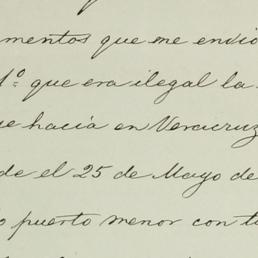 mentos que me envió
1º que era ilegal la
se hacía en Veracruz
de el 25 de Mayo de
puerto menor con